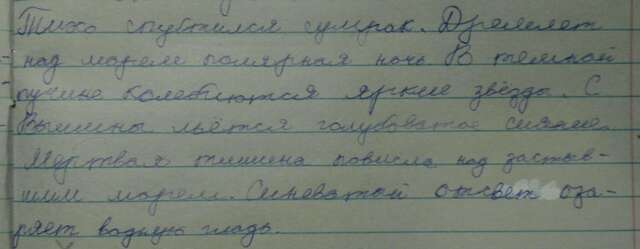 Тихо спустился сумрак. Дремлет
над морем полярная ночь В темной
пучине колеблются яркие звёзды. С
вышины льётся голубоватое сияние.
Мертвая тишина повисла над застыв-
шим морем. Синеватый отсвет оза-
ряет водную гладь.